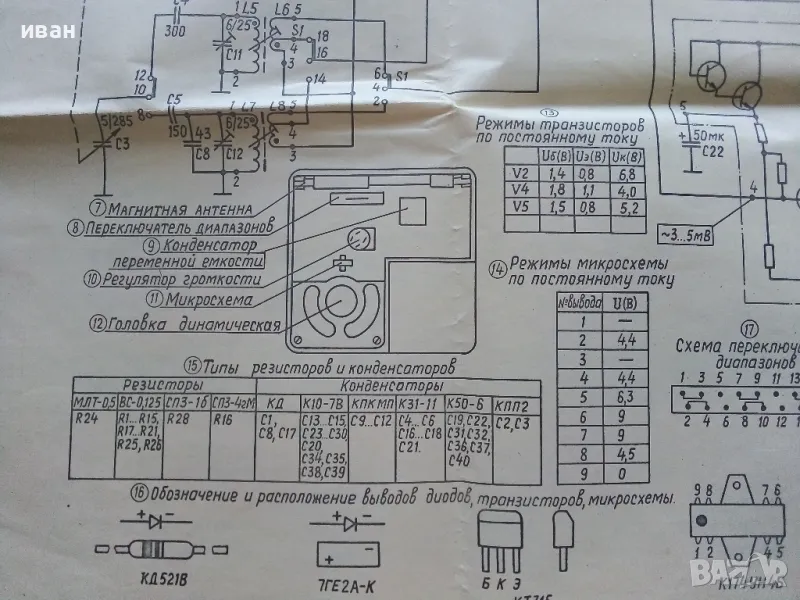 иван
C4
300
1 L5
L6 5
6/25
C11
S1
4
3
18
16
2
12
10
8
C5
150
5/285
C3
43
C8
1 L7
6/25
C12
2
L8 5
4
3
14
6
4
2
S1
5
50мк
C22
4
~3...5мВ
13
Режимы транзисторов
по постоянному току
Uб(В) Uэ(В) Uк(В)
V2 1,4 0,8 6,8
V4 1,8 1,1 4,0
V5 1,5 0,8 5,2
7 Магнитная антенна
8 Переключатель диапазонов
9 Конденсатор
переменной емкости
10 Регулятор громкости
11 Микросхема
12 Головка динамическая
14 Режимы микросхемы
по постоянному току
№вывода U(В)
1 —
2 4,4
3 —
4 4,4
5 6,3
6 9
7 9
8 4,5
9 0
17
Схема переключ
диапазонов
1 3 5 7 9 11 13
2 4 6 8 10 12
15 Типы резисторов и конденсаторов
Резисторы Конденсаторы
МЛТ-0,5 ВС-0,125 СП3-1б СП3-4гМ КД К10-7В КПКМП К31-11 К50-6 КПП2
R24 R1...R15, R28 R16 C1, C13...C15, C9...C12 C4...C6 C19,C22, C2,C3
R17...R21, C8,C17 C23...C30 C16...C18 C31,C32,
R25, R26 C20, C21. C36,C37,
C34,C35, C40
C38,C39
16 Обозначение и расположение выводов диодов, транзисторов, микросхемы.
+ -
+ -
+ -
+ -
КД521В
7ГЕ2А-К
Б К Э
КТ315
9 8 7 6
1 2 4 5
BAZAR